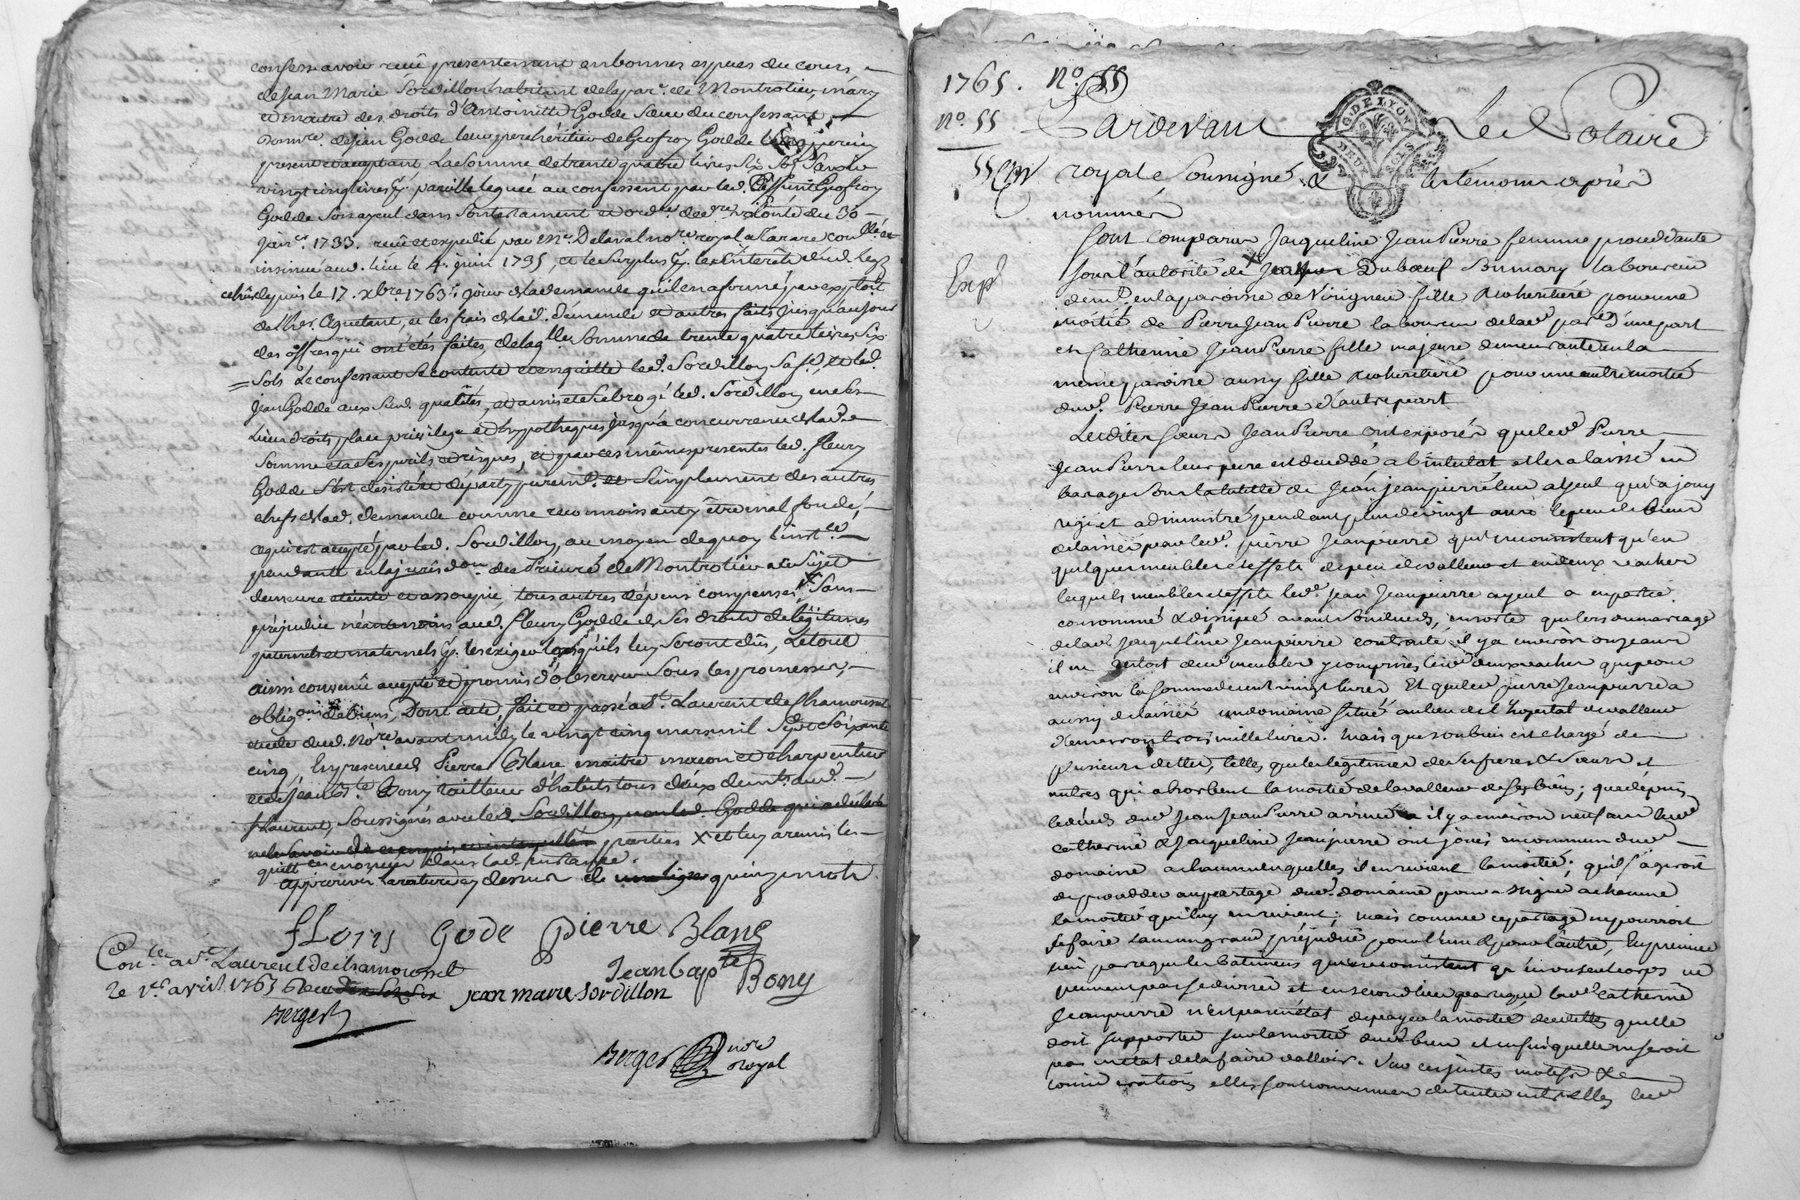 confesse avoir reçû presentement en bonnes especes du cours
de Jean Marie Sordillon habitant de la par.e de Montrotier, mary
et maitre des droits d'Antoinette Godde Sœur du confessant
de jean Godde heritier de Geofroy Godde
present et acceptant La somme de trente quatre livres six Sols Savoir
vingt cinq livres pareille leguée au confessent par led. Geofroy
Godde Son ayeul dans Son testament et ord.e de d.re volonté du 30
janv.er 1733. reçû et expedié par M.e Delaval no.re royal a Tarare
insinué aud. lieu le 4. juin 1735, et le surplus les Enterêts dud. legs
depuis le 17. xbre 1763. jour de la demande qu'il en a formé par exploit
de et les frais de lad. demande et autres faits jusqu'au jour
des offres qui ont étés faites, de laq.lle Somme de trente quatre livres Six
Sols Le confessant Se contente et en quitte led. Sordillon et led.
jean Godde aux Sud. qualités, et a mis et Subrogé led. Sordillon en Ses
Lieu droits place privilege et hypotheques jusqu'a concurrence de lad.
Somme et a Ses perils et risques, et par ces mêmes presentes led. fleury
Godde S'est desisté et départy purem.t et Simplement des autres
chefs de lad. demande comme reconnoissant y être mal fondé,
ce qui est accepté par led. Sordillon, au moyen de quoy l'inst.ce
pendante en la jurisdon. du Prieuré de Montrotier a ce Sujet
demeure eteinte et assoupie, tous autres dépens compensés, Sans
préjudice néantmoins aud. fleury Godde de Ses droits de légitimes
paternels et maternels les exiger lorsqu'ils luy Seront dûs, Le tout
ainsi convenû accepté et promis d'observer Sous les promesses,
oblig.ons de biens, Dont acte, fait et passé a S.t Laurent de Chamousset
etude dud. No.re avant midy le vingt cinq mars mil Sept Soixante
cinq, En presence de Pierre Blanc maitre masson et charpentier
et de jean B.te Bony tailleur d'habits tous deux dem.ts aud.
S.t Laurent, Soussignés avec led. Sordillon, non led. Godde qui a déclaré
parties X et luy a remis les
quitt.ces dans lad. instance.
approuver La rature cy dessus de quinze mots
fLoris Gode Pierre Blanc
Jean Bap.te Bony
jean marie Sordillon
Con.lé a S.t Laurent de Chamousset
le 1.er avril 1765
Berger
Berger no.re royal
1765. N.o 55
N.o 55
Pardevant Le Notaire
G. DE LYON
DEUX SOLS
royal Soussigné & les temoins après
nommés
Exp.é
Sont comparues Jacqueline JeanPierre femme procedante
sous l'autorité de Dubœuf Son mary laboureur
dem.t en la paroisse de Virigneu fille & coheritiere pour une
moitié de Pierre JeanPierre laboureur de lad. par.e D'une part
et Catherine JeanPierre fille majeure demeurante en la
meme paroisse aussy fille & coheritiere pour une autre moitié
dud. Pierre JeanPierre d'autre part
Lesdites Sœurs JeanPierre ont exposés que led. Pierre
JeanPierre leur pere est decedé ab intestat et les a laissé en
bas age Sous la tutelle de Jean jeanpierre leur ayeul qui a jouy
regi et administré pendant plus de vingt ans le peu de biens
delaissés par led. pierre Jeanpierre qui ne consistent qu'en
quelques meubles & effets de peu de valleur et en deux vaches
lesquels meubles & effets led. Jean Jeanpierre ayeul a en partie
consommé & dissipé avant Son deces, en sorte que lors du mariage
de lad. Jacqueline Jeanpierre contracté il y a environ onze ans
il ne restoit des meubles y compris les deux vaches que pour
environ la Somme de cent vingt livres Et que led. pierre Jeanpierre a
aussy delaissé un domaine situé au lieu de l'hopital de valleur
d'environ trois mille livres. mais que son bien est chargé de
plusieurs dettes, telles que les legitimes de Ses freres & Sœurs et
autres qui absorbent la moitié de la valleur de Ses biens, que depuis
le deces dud. Jean JeanPierre arrivé il y a environ neuf ans lesd.
Catherine & Jacqueline Jeanpierre ont jouis en commun dud.
domaine a chacune desquelles il en revient la moitié; qu'il S'agiroit
de proceder au partage dud. domaine pour assigner a chacune
la moitié qui luy en revient; mais comme ce partage ne pourroit
se faire sans un grand préjudice pour l'une & pour l'autre, En premier
lieu parce que les batimens qui ne consistent qu'en un seul corps ne
peuvent pas se diviser et en second lieu parce que lad. Catherine
Jeanpierre n'est pas en état de payer la moitié des dettes qu'elle
doit supporter sur la moitié dud. bien et ensuite qu'elle ne seroit
pas en état de la faire valloir. Vues ces justes motifs &
considerations elles Sont convenues de traiter entr'elles